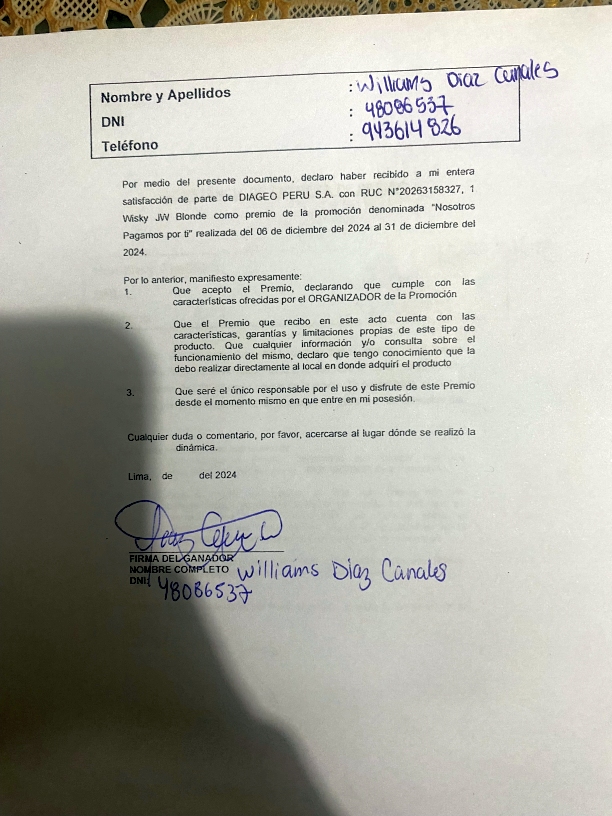 Nombre y Apellidos : Williams Diaz Canales
DNI : 48086537
Teléfono : 943614826
Por medio del presente documento, declaro haber recibido a mi entera
satisfacción de parte de DIAGEO PERU S.A. con RUC N°20263158327, 1
Wisky JW Blonde como premio de la promoción denominada "Nosotros
Pagamos por ti" realizada del 06 de diciembre del 2024 al 31 de diciembre del
2024.
Por lo anterior, manifiesto expresamente:
1. Que acepto el Premio, declarando que cumple con las
características ofrecidas por el ORGANIZADOR de la Promoción
2. Que el Premio que recibo en este acto cuenta con las
características, garantías y limitaciones propias de este tipo de
producto. Que cualquier información y/o consulta sobre el
funcionamiento del mismo, declaro que tengo conocimiento que la
debo realizar directamente al local en donde adquirí el producto
3. Que seré el único responsable por el uso y disfrute de este Premio
desde el momento mismo en que entre en mi posesión.
Cualquier duda o comentario, por favor, acercarse al lugar dónde se realizó la
dinámica.
Lima, de del 2024
FIRMA DEL GANADOR
NOMBRE COMPLETO Williams Diaz Canales
DNI: 48086537